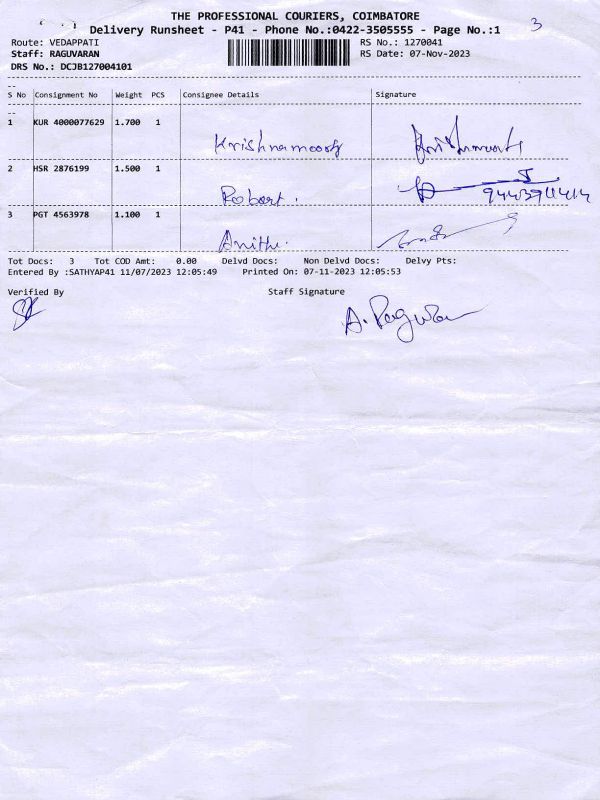 THE PROFESSIONAL COURIERS, COIMBATORE
3
Delivery Runsheet - P41 - Phone No.:0422-3505555 - Page No.:1
Route: VEDAPPATI RS No.: 1270041
Staff: RAGUVARAN RS Date: 07-Nov-2023
DRS No.: DCJB127004101
S No Consignment No Weight PCS Consignee Details Signature
1 KUR 4000077629 1.700 1
Krishnamoorty
2 HSR 2876199 1.500 1
Robert. 9443911414
3 PGT 4563978 1.100 1
Anitha.
Tot Docs: 3 Tot COD Amt: 0.00 Delvd Docs: Non Delvd Docs: Delvy Pts:
Entered By :SATHYAP41 11/07/2023 12:05:49 Printed On: 07-11-2023 12:05:53
Verified By Staff Signature
A. Raguvaran